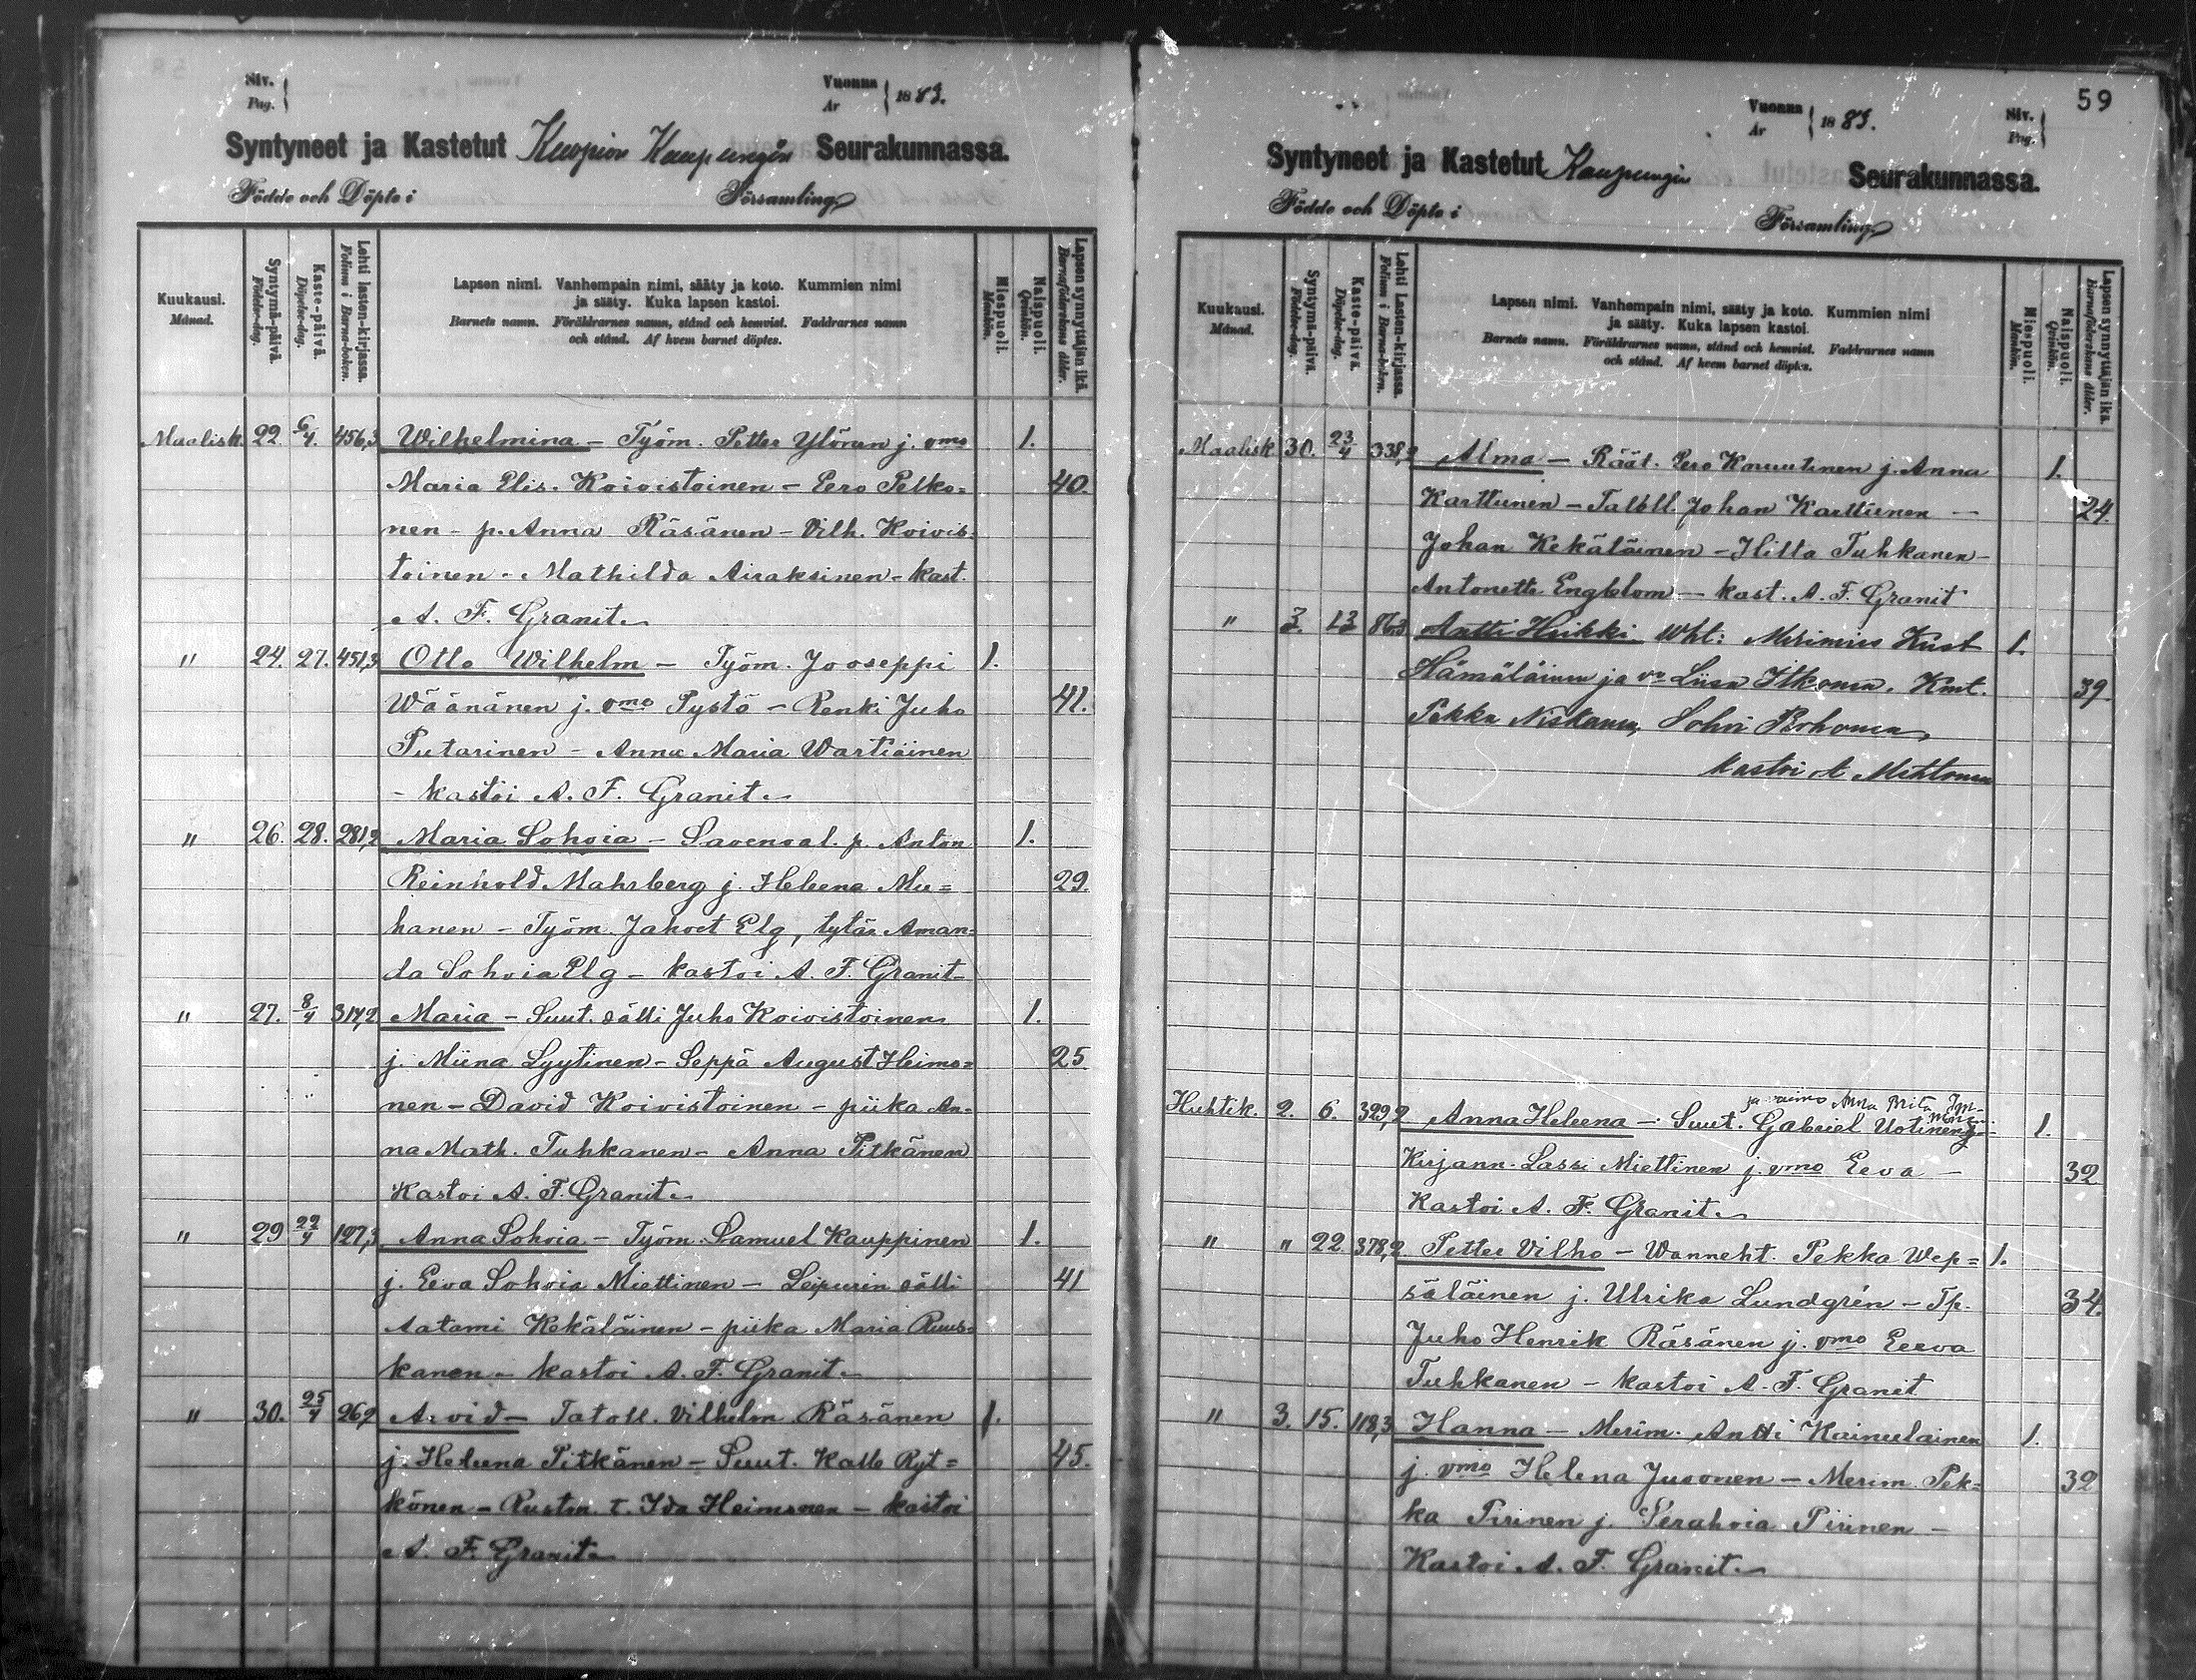 Siv.
Pag.
Vuonna
År
1883.
Syntyneet ja Kastetut Kuopion Kaupungin Seurakunnassa.
Födde och Döpte i Församling
Kuukausi.
Månad.
Syntymä-päivä.
Födelse-dag.
Kaste-päivä.
Döpelse-dag.
Lehti lasten-kirjassa.
Folium i Barna-boken.
Lapsen nimi. Vanhempain nimi, sääty ja koto. Kummien nimi
ja sääty. Kuka lapsen kastoi.
Barnets namn. Föräldrarnes namn, stånd och hemvist. Faddrarnes namn
och stånd. Af hvem barnet döptes.
Miespuoli.
Mankön.
Naispuoli.
Qvinkön.
Lapsen synnyttäjän ikä.
Barnaföderskans ålder.
Maalisk. 22. 6/4. 456,3 Wilhelmina - Työm. Petter Ylönen j. vmo 1.
Maria Elis. Koivistoinen - Eero Pelko= 40.
nen - p. Anna Räsänen - Vilh. Koivis-
toinen - Mathilda Airaksinen - kast.
A. F. Granit.
" 24. 27. 451,3 Otto Wilhelm - Työm. Jooseppi 1.
Wäänänen j. vmo Pystö - Renki Juho 41.
Putarinen - Anna Maria Wartiainen
- kastoi A. F. Granit.
" 26. 28. 281,2 Maria Sohvia - Savenval. p. Anton 1.
Reinhold Mahrberg j. Heleena Mu= 29.
hanen - Työm. Jahvet Elg, tytär Aman-
da Sohvia Elg - kastoi A. F. Granit
" 27. 8/4 317,2 Maria - Suut. sälli Juho Koivistoinen 1.
j. Miina Lyytinen - Seppä August Heimo= 25.
nen - David Koivistoinen - piika An-
na Math. Tuhkanen - Anna Pitkänen
Kastoi A. F. Granit.
" 29 22/4 127,3 Anna Sohvia - Työm. Samuel Kauppinen 1.
j. Eeva Sohvia Miettinen - Leipurin sälli 41
Aatami Kekäläinen - piika Maria Ruus-
kanen - kastoi A. F. Granit.
" 30. 25/4 26,2 Arvid - Taloll. Vilhelm Räsänen 1.
j. Heleena Pitkänen - Suut. Kalle Ryt= 45.
könen - Rustm. t. Ida Heimonen - kastoi
A. F. Granit.
59
Vuonna
År
1883.
Siv.
Pag.
Syntyneet ja Kastetut Kaupungin Seurakunnassa.
Födde och Döpte i Församling
Kuukausi.
Månad.
Syntymä-päivä.
Födelse-dag.
Kaste-päivä.
Döpelse-dag.
Lehti Lasten-kirjassa.
Folium i Barna-boken.
Lapsen nimi. Vanhempain nimi, sääty ja koto. Kummien nimi
ja sääty. Kuka lapsen kastoi.
Barnets namn. Föräldrarnes namn, stånd och hemvist. Faddrarnes namn
och stånd. Af hvem barnet döptes.
Miespuoli.
Mankön.
Naispuoli.
Qvinkön.
Lapsen synnyttäjän ikä.
Barnaföderskans ålder.
Maalisk 30. 23/4 338,2 Alma - Räät. Eero Knuutinen j. Anna 1.
Karttunen - Taloll. Johan Karttunen - 24.
Johan Kekäläinen - Hilta Tuhkanen -
Antonette Engblom - kast. A. F. Granit
" 3. 13 86,3 Antti Heikki Wht: Merimies Kust 1.
Hämäläinen ja vo Liisa Itkonen. Kmt. 39
Pekka Niskanen, Sohvi
kastoi A
Huhtik. 2. 6. 329,2 Anna Heleena - Suut. Gabriel Uotinen 1.
ja vaimo Anna Brita
Kirjann. Lassi Miettinen j. vmo Eeva - 32
Kastoi A. F. Granit.
" " 22. 378,2 Petter Vilho - Wanneht. Pekka Wep= 1.
säläinen j. Ulrika Lundgrén - Tp. 34.
Juho Henrik Räsänen j. vmo Eeva
Tuhkanen - kastoi A. F. Granit
" 3. 15. 118,3 Hanna - Merim. Antti Kainulainen 1.
j. vmo Helena Jusonen - Merim. Pek- 32
ka Pirinen j. Serahvia Pirinen -
Kastoi A. F. Granit.